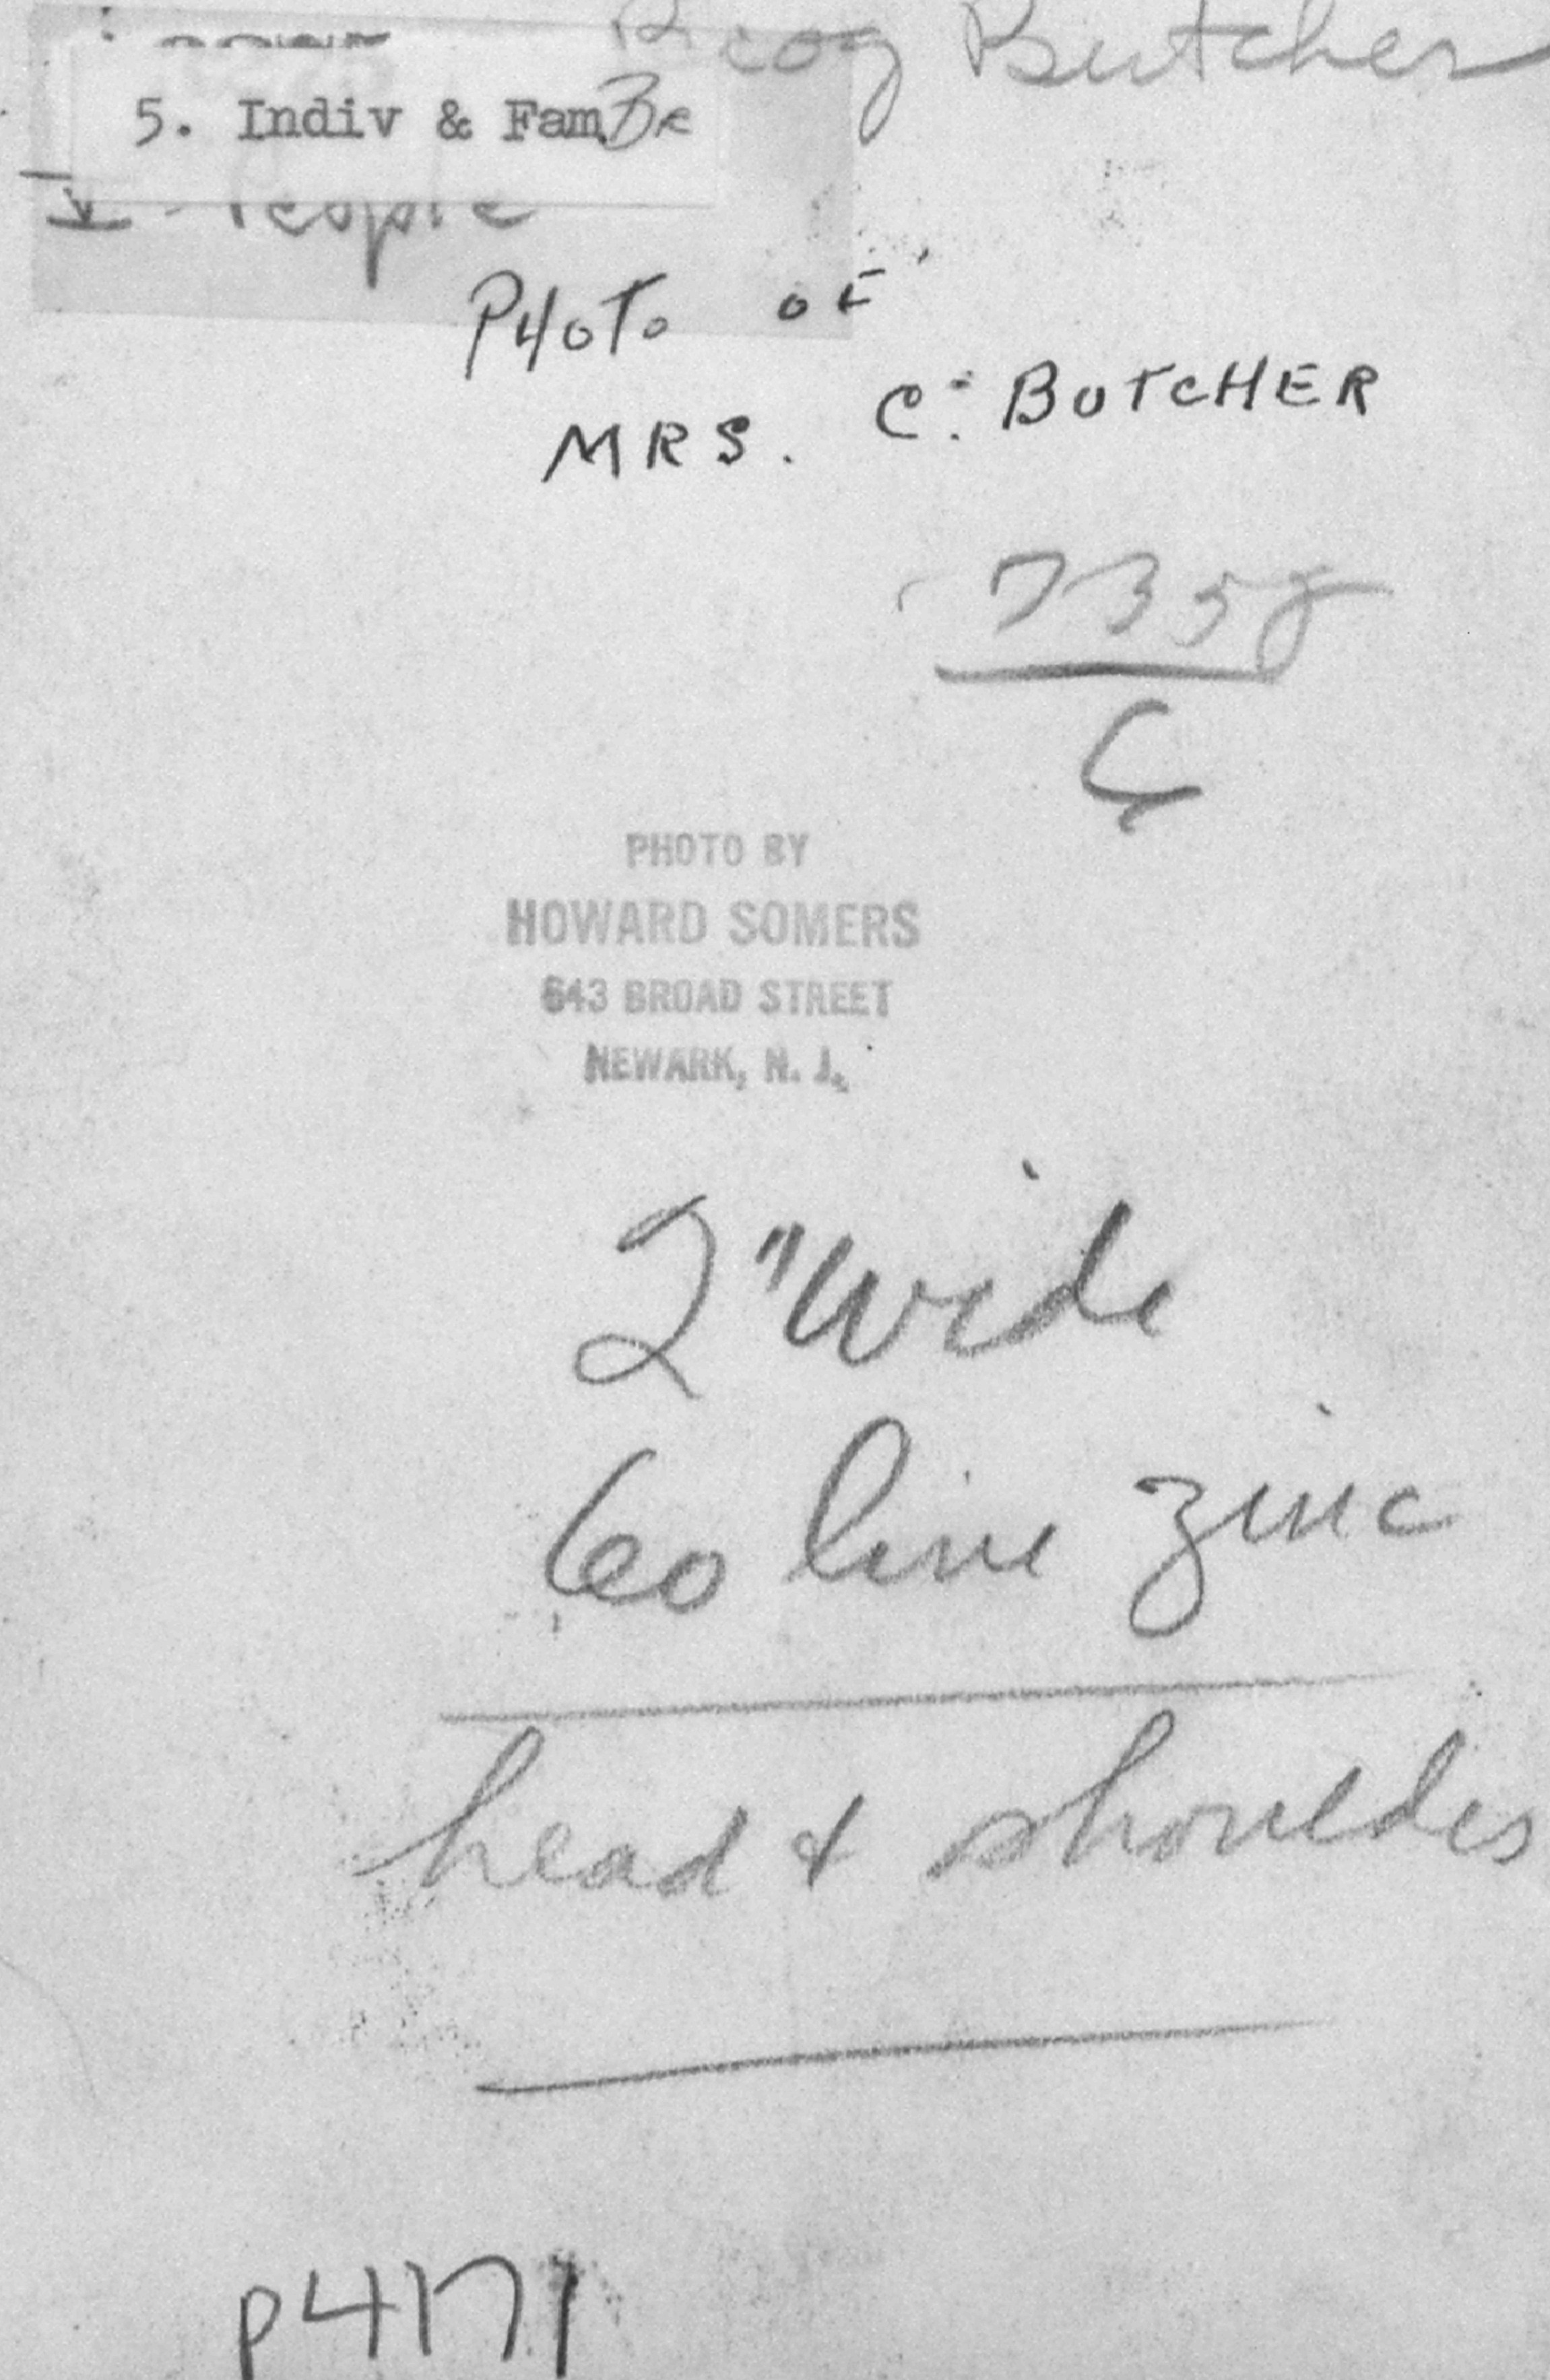 Biog Butcher
5. Indiv & Fam Be
V - People
PHOTO OF
MRS. C. BUTCHER
7358
C
PHOTO BY
HOWARD SOMERS
643 BROAD STREET
NEWARK, N. J.
2" wide
60 line zinc
head & shoulders
P4171